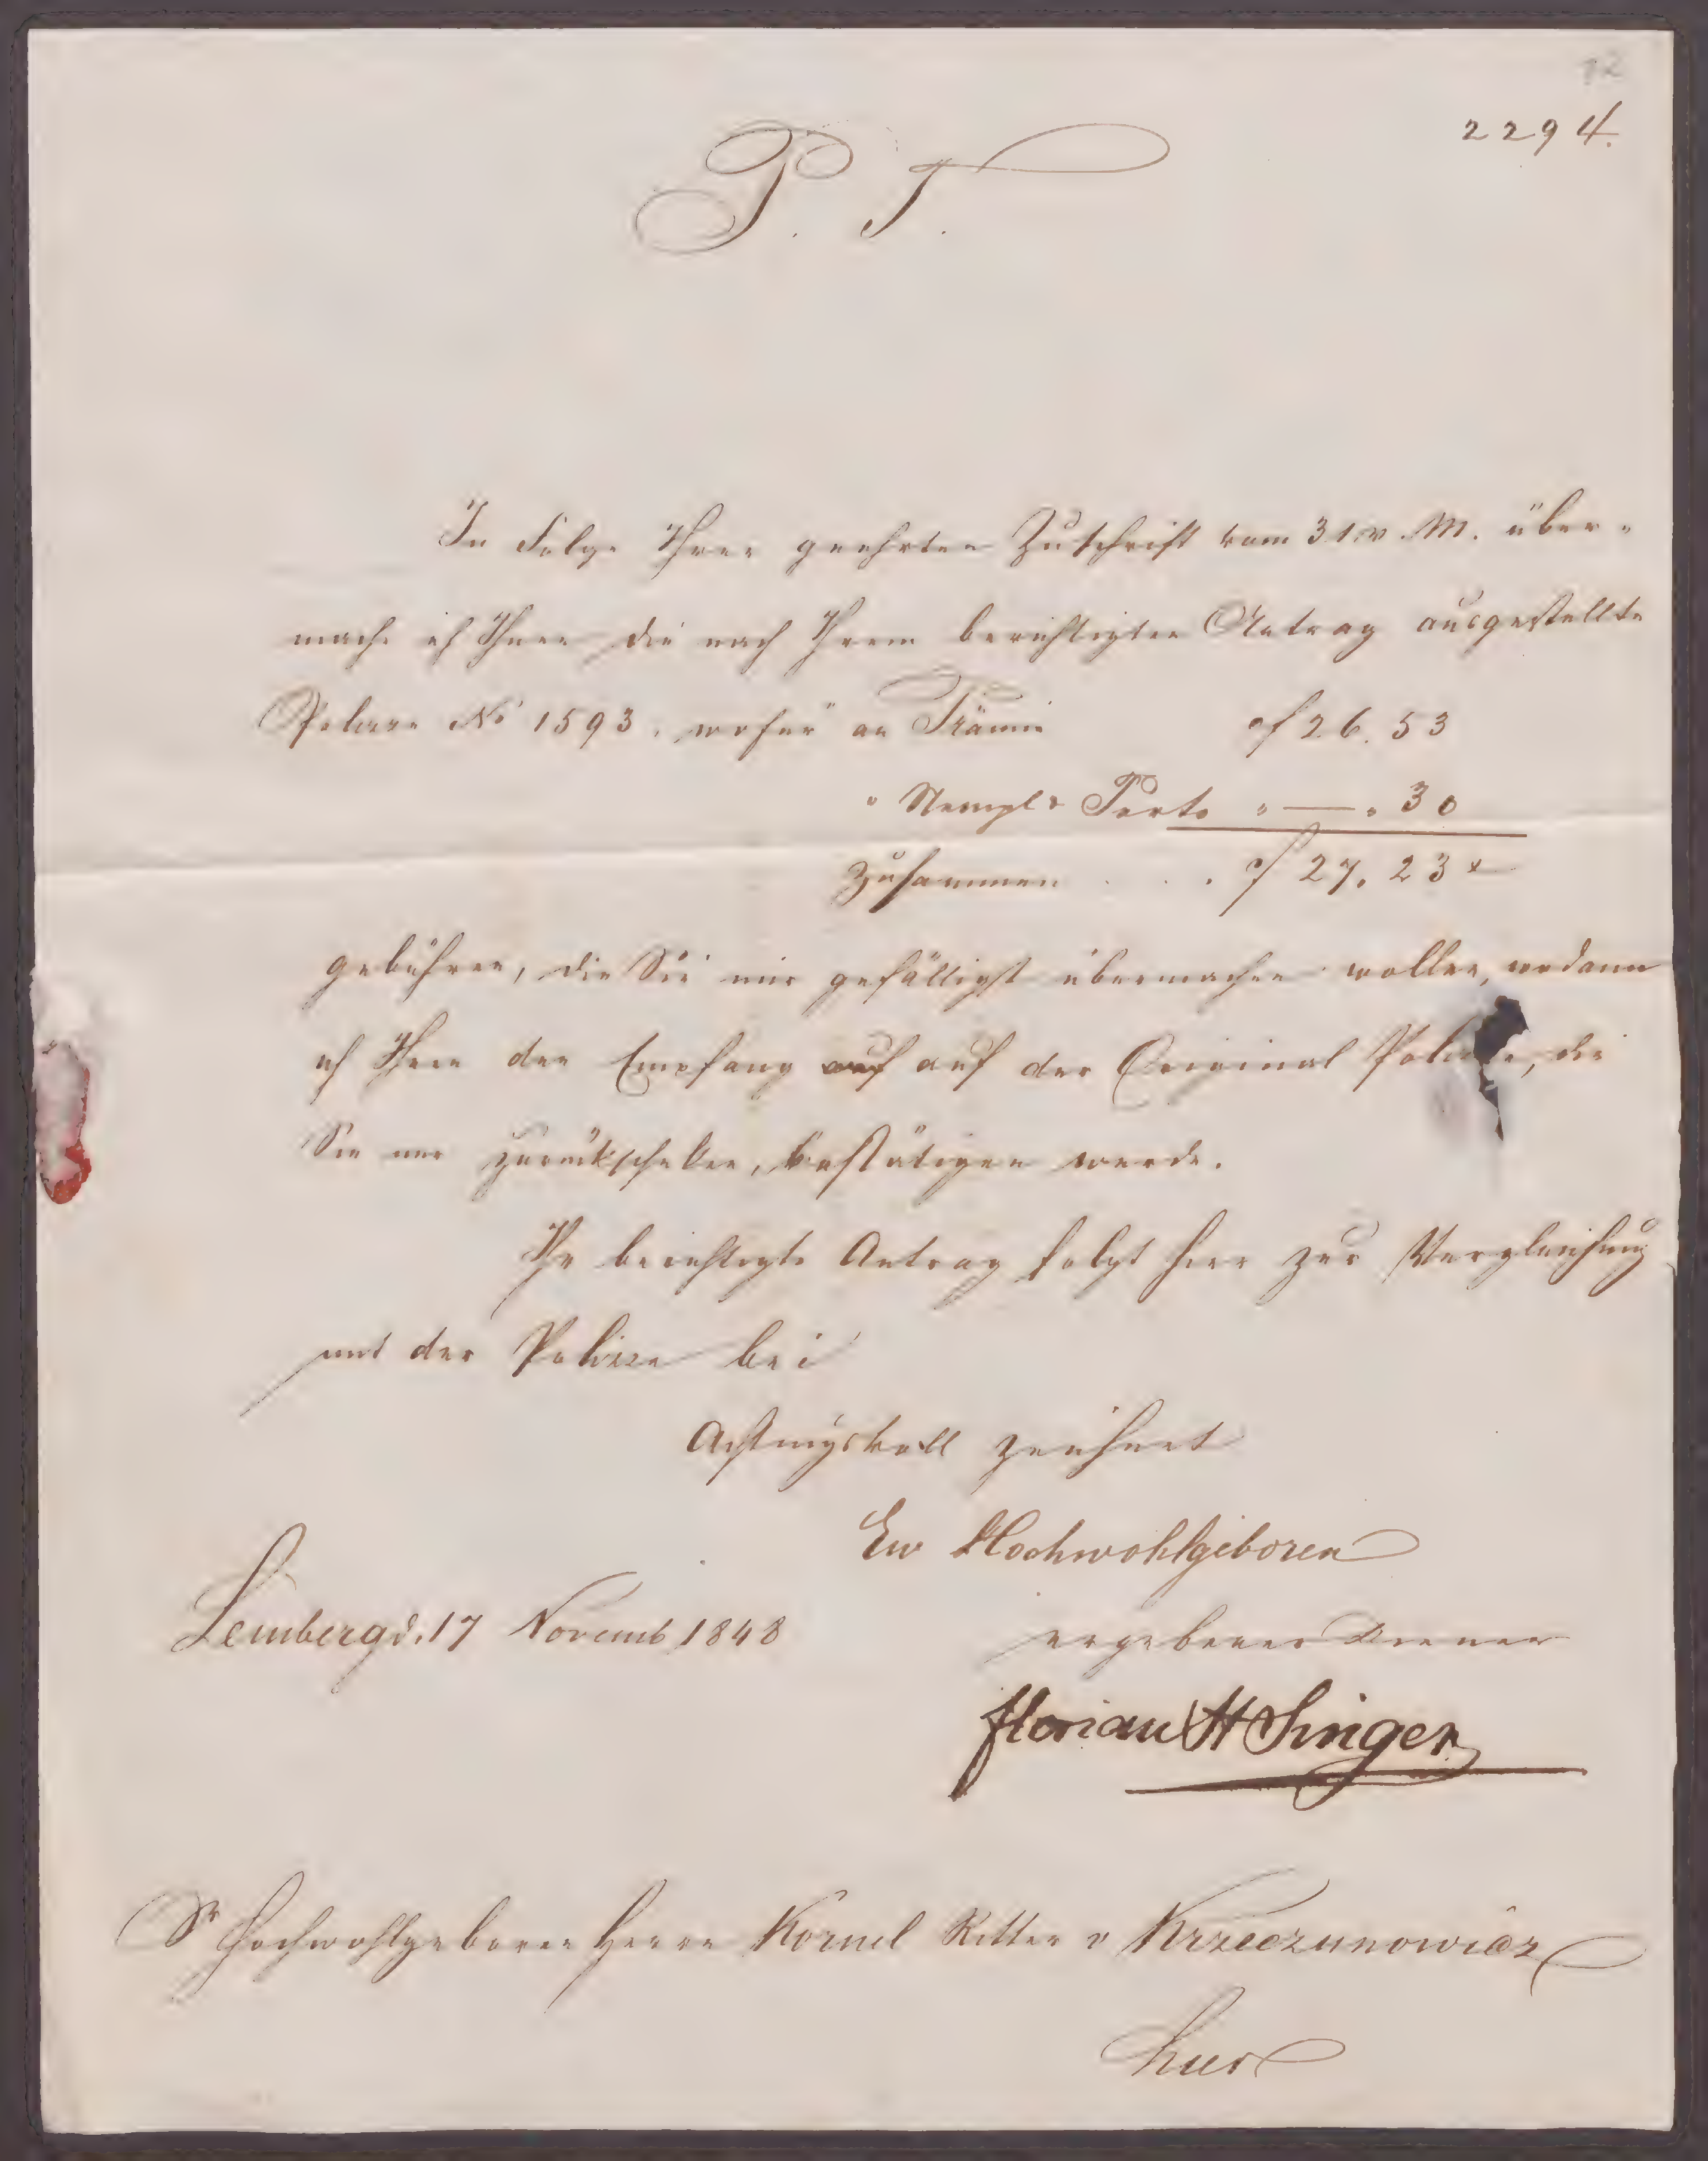 12
2294.
P. T.
In Folge Ihrer geehrten Zuschrift vom 31 v. M. über-
mache ich Ihnen die nach Ihrem berichtigten Antrag ausgestellte
Polizze No 1593, wofür an Prämie f 26. 53
" Stempl & Porto " — " 30
Zusammen . . . f 27. 23 x
gebühren, die Sie mir gefälligst übermachen wollen, wodann
ich Ihnen den Empfang auf auf der Original Polizze, die
Sie mir zurückschicken, bestätigen werde.
Ihr berichtigte Antrag folgt hier zur Vergleichung
mit der Polizze bei
Achtungsvoll zeichnet
Ew Hochwohlgeboren
Lemberg d. 17 Novemb 1848
ergebener Diener
Florian H Singer
Sr Hochwohlgeboren Herrn Kornel Ritter v Krzeczunowicz
hier